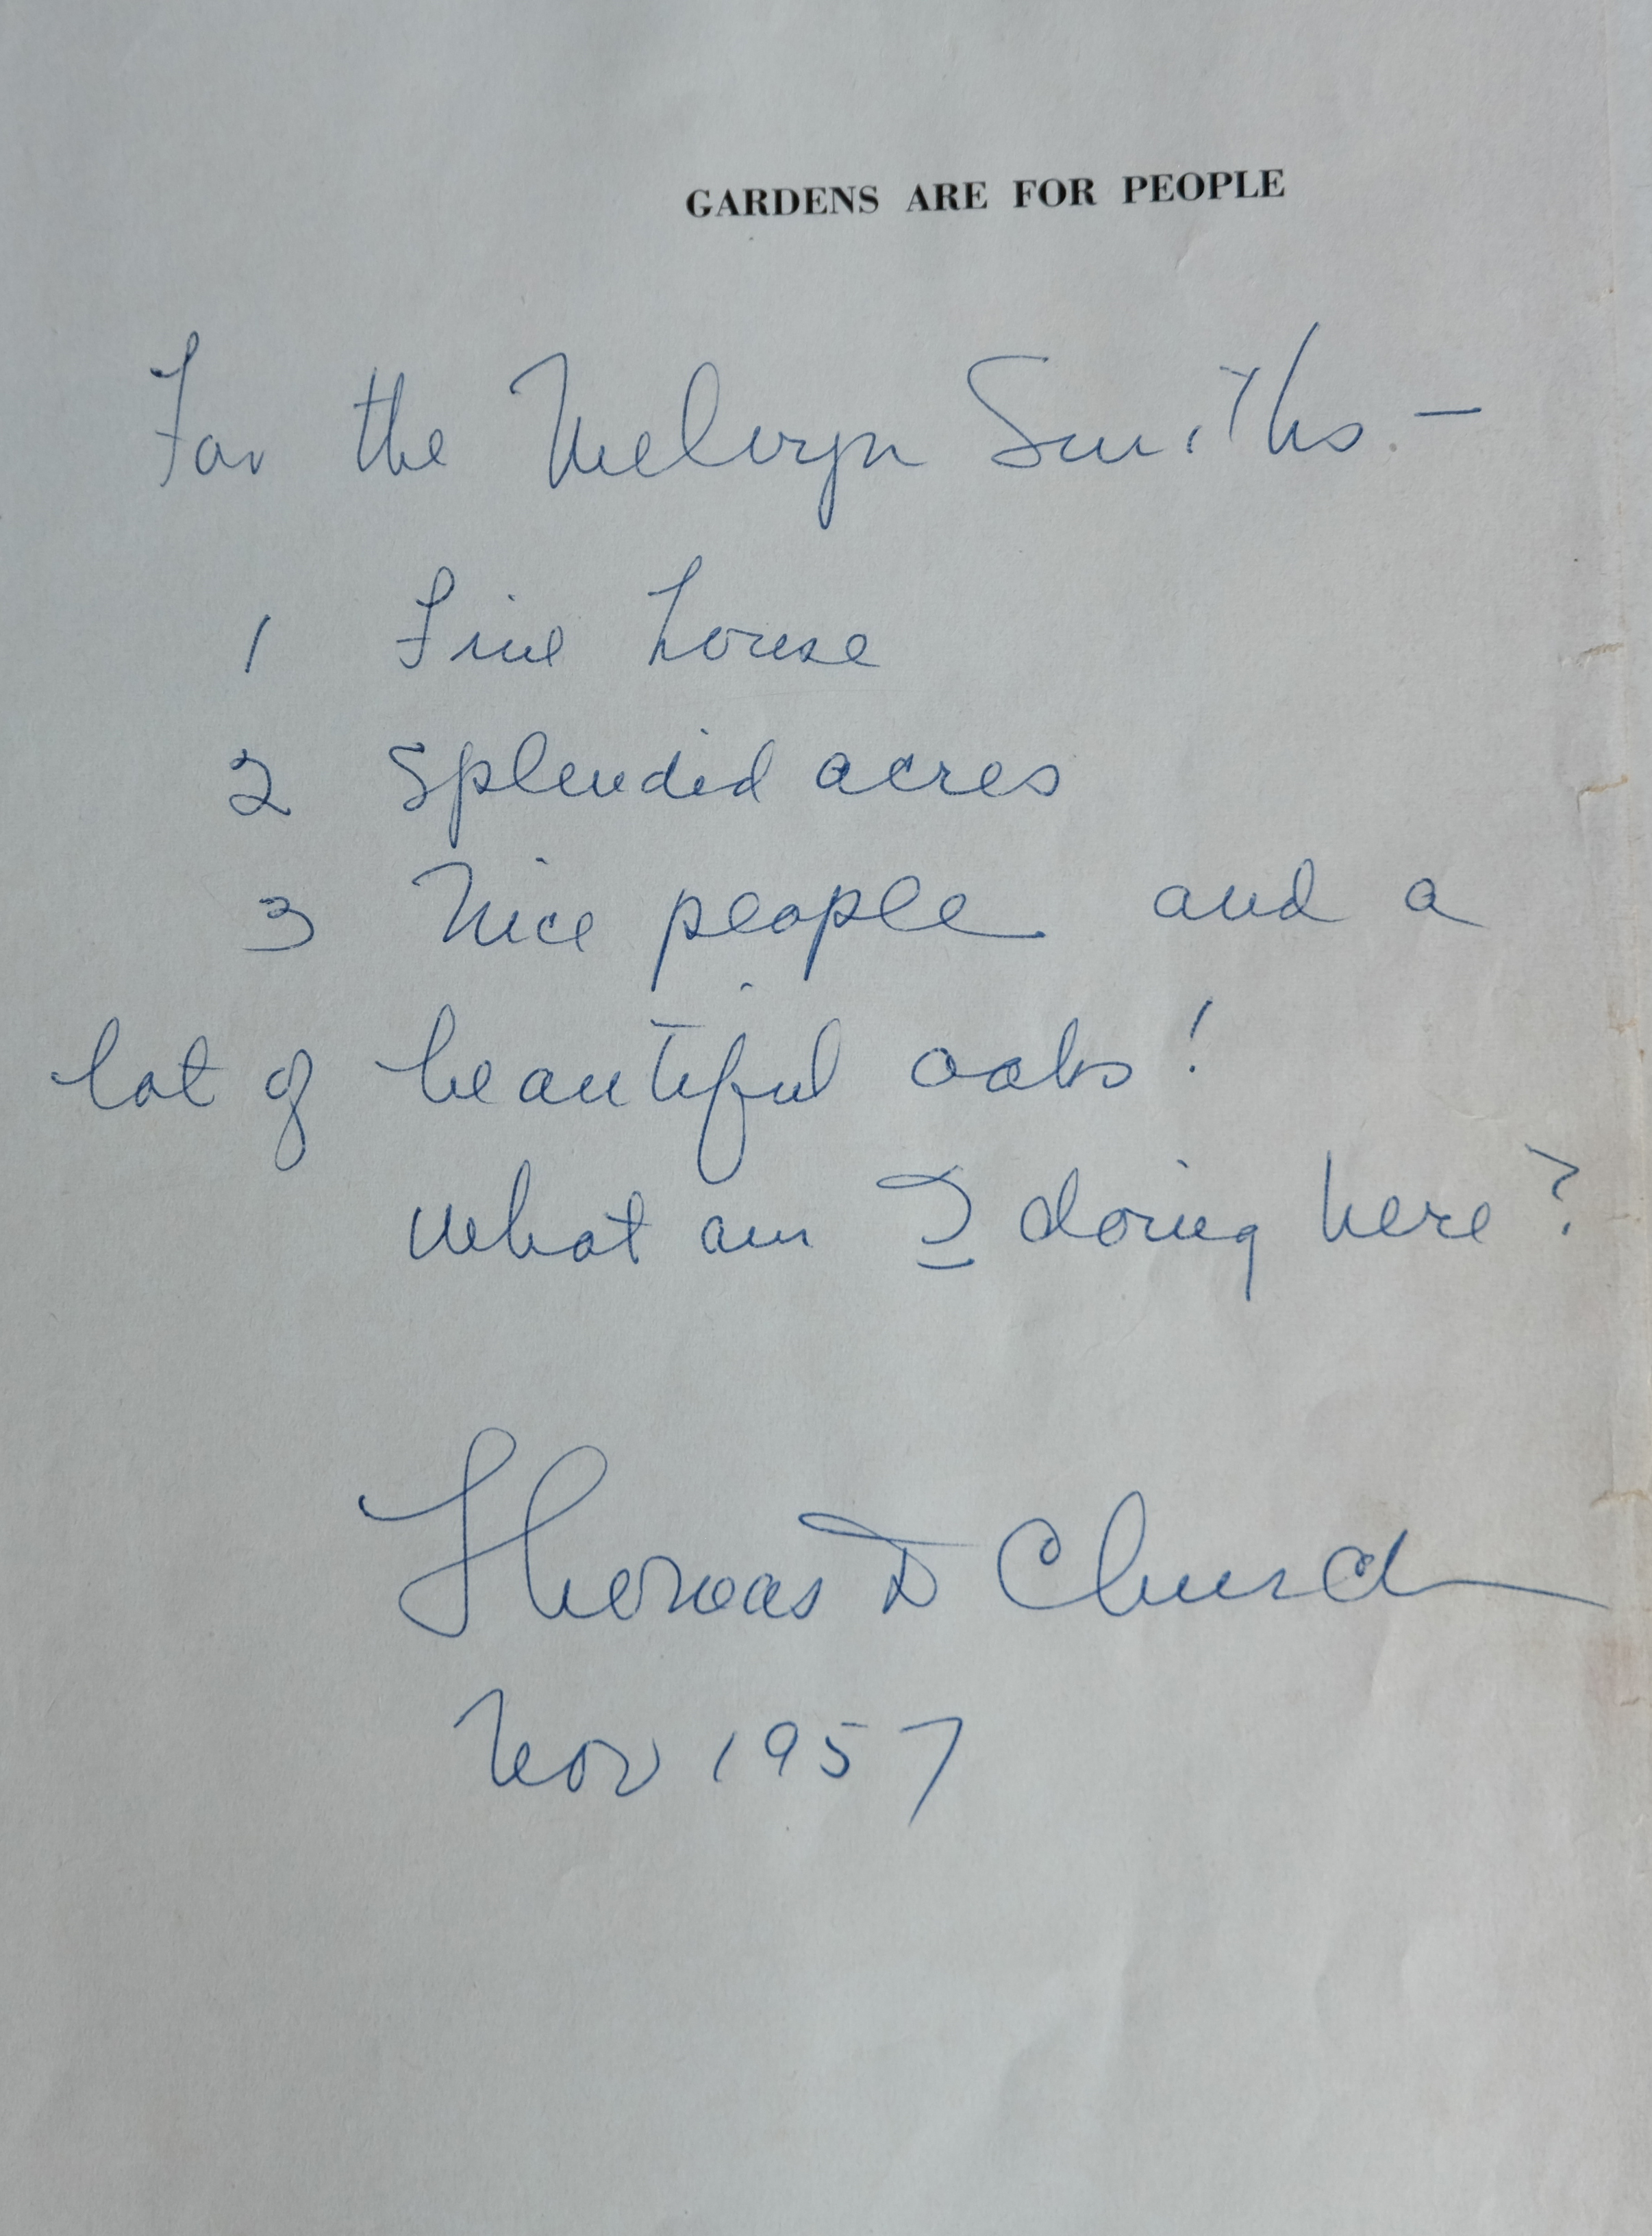 GARDENS ARE FOR PEOPLE
For the Melvyn Smiths —
1 Fine house
2 Splendid acres
3 Nice people and a
lot of beautiful oaks!
What am I doing here?
Thomas D Church
Nov 1957